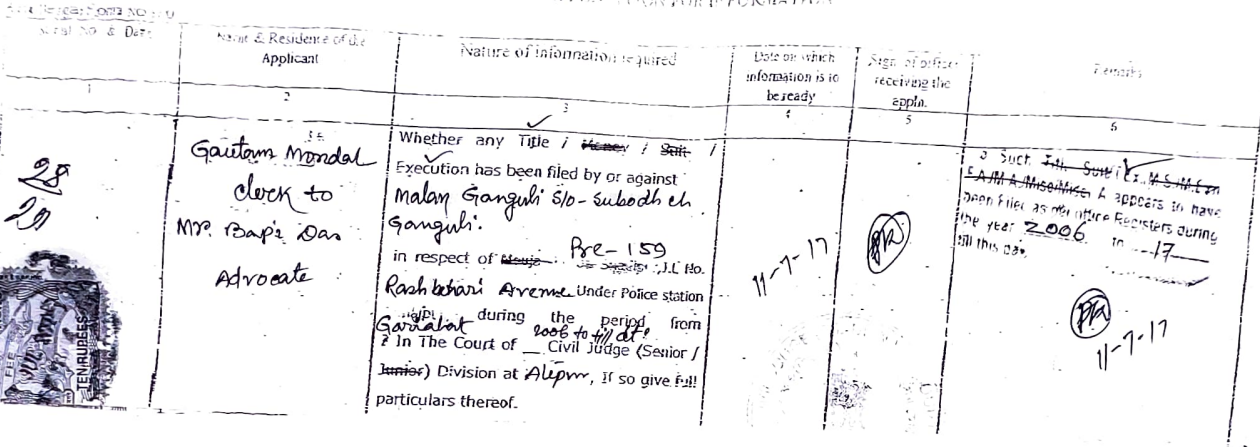 FORM NO
FOR INFORMATION
Serial No & Date
Name & Residence of the
Applicant
Nature of information required
Date on which
information is to
be ready
Sign. of officer
receiving the
appln.
Remarks
1
2
3
4
5
6
28
29
Gautam Mondal
clerk to
Mr. Bapi Das
Advocate
Whether any Title / Money / Suit /
Execution has been filed by or against
Malay Ganguli S/o- Subodh ch.
Ganguli.
in respect of Mouja Pre-159
J.L No.
Rashbehari Avenue Under Police station
Gariahat during the period from
2006 to till dt.
? In The Court of __ Civil Judge (Senior /
Junior) Division at Alipur, If so give full
particulars thereof.
11-7-17
Such Title Suit / Ex. M.S/M.Ex
F.A/M A/Misc/Misc A appears to have
been filed as per office Registers during
the year 2006 to 17
till this date.
11-7-17
FEE
TEN RUPEES